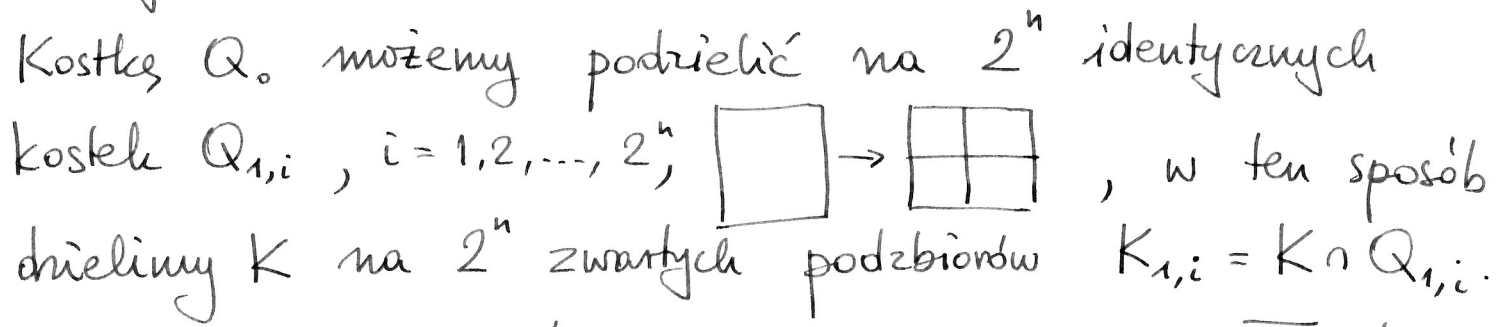 Kostkę Q₀ możemy podzielić na 2ⁿ identycznych
kostek Q₁,ᵢ , i = 1,2,..., 2ⁿ; → , w ten sposób
dzielimy K na 2ⁿ zwartych podzbiorów K₁,ᵢ = K ∩ Q₁,ᵢ.